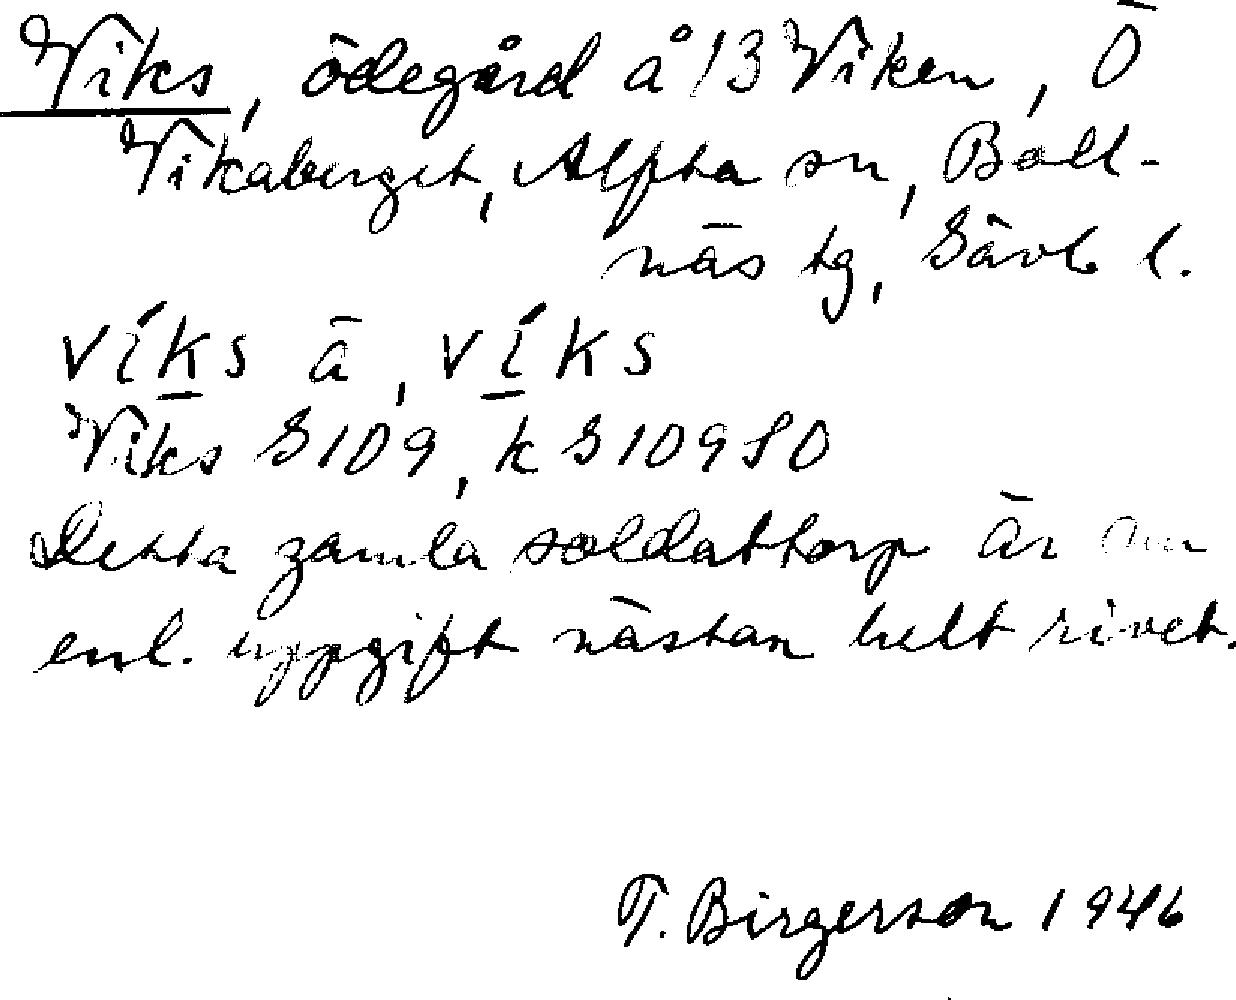 Viks, ödegård å 13 Viken, Ö
Vikaberget, Alfta sn, Boll-
näs tg, Gävleb l.
víks ä, víks
Viks G109, k G109 SO
Detta gamla soldattorp är nu
enl. uppgift nästan helt rivet.
T. Birgerson 1946